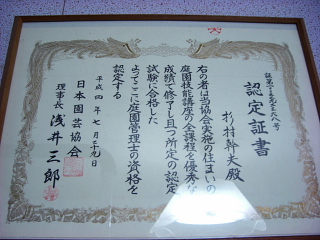 認定証書
杉村幹夫殿
右の者は当協会実施の住まいの
庭園技能講座の全課程を優秀な
成績で修了し且つ所定の認定
試験に合格した
よってここに庭園管理士の資格を
認定する
平成四年七月二十九日
日本園芸協会
理事長 浅井三郎